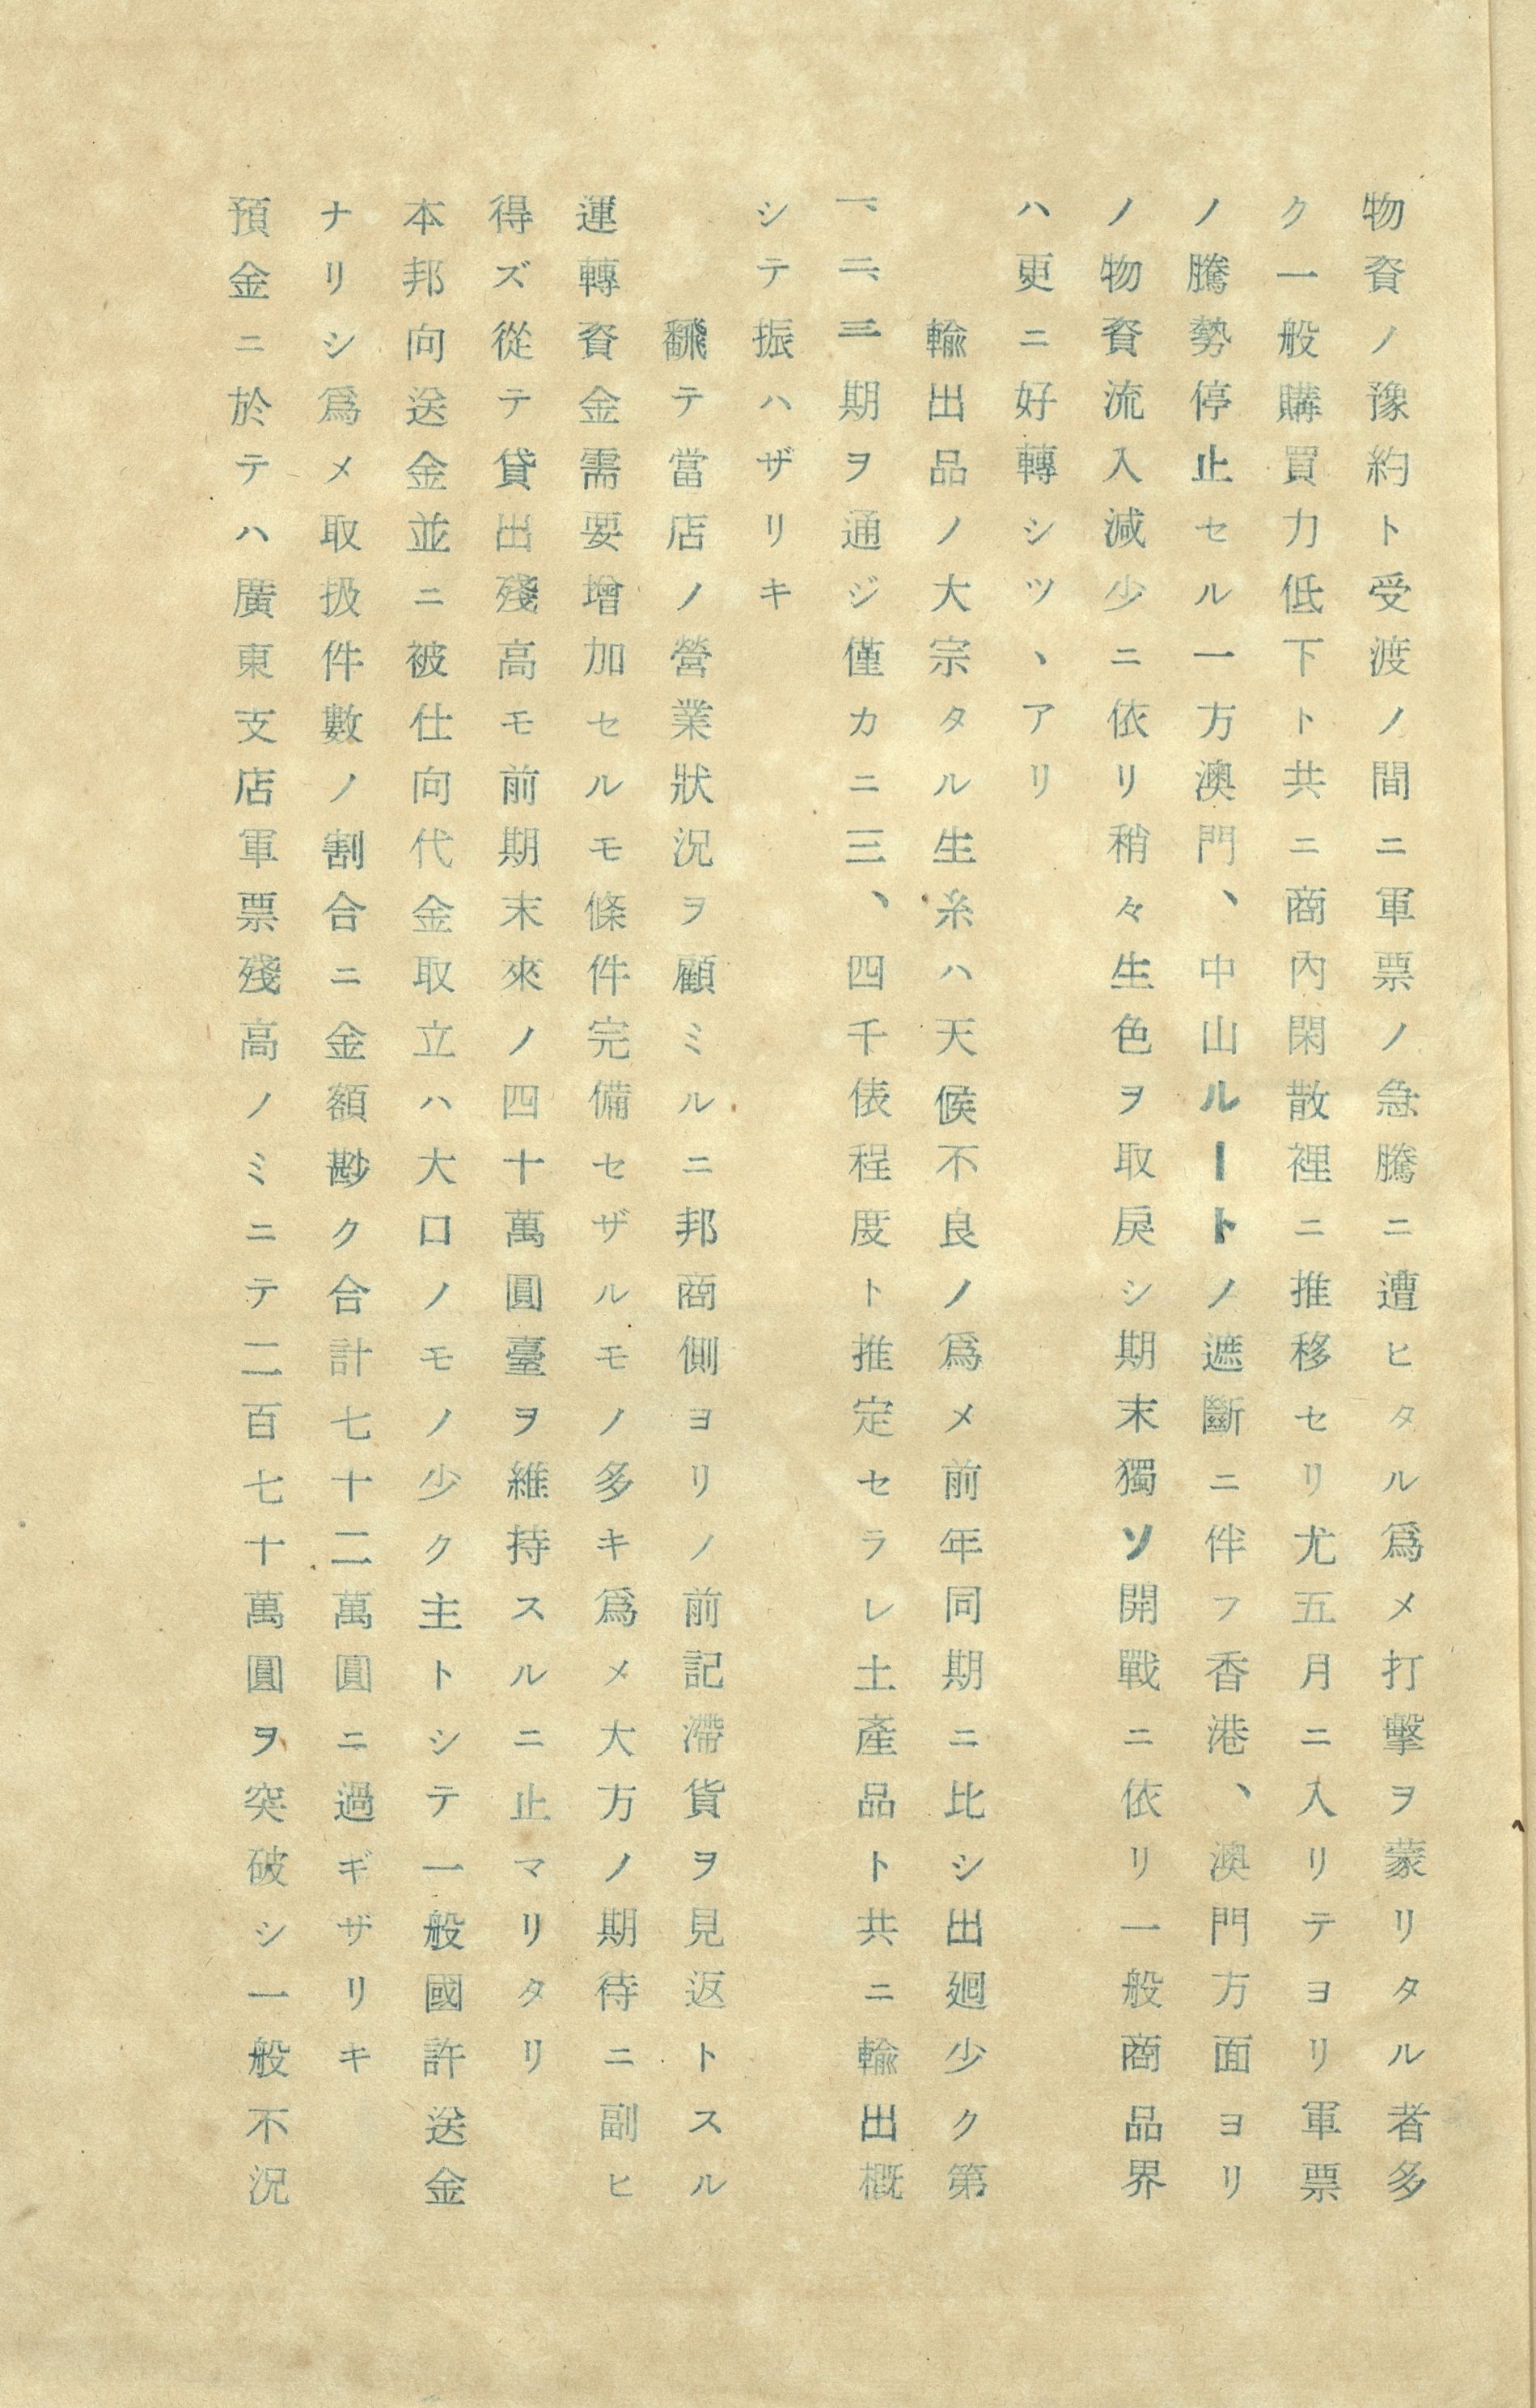 物資ノ豫約ト受渡ノ間ニ軍票ノ急騰ニ遭ヒタル爲メ打擊ヲ蒙リタル者多
ク一般購買力低下ト共ニ商內閑散裡ニ推移セリ尤五月ニ入リテヨリ軍票
ノ騰勢停止セル一方澳門、中山ルートノ遮斷ニ伴フ香港、澳門方面ヨリ
ノ物資流入減少ニ依リ稍々生色ヲ取戾シ期末獨ソ開戰ニ依リ一般商品界
ハ更ニ好轉シツヽアリ
輸出品ノ大宗タル生糸ハ天候不良ノ爲メ前年同期ニ比シ出廻少ク第
一、二、三期ヲ通ジ僅カニ三、四千俵程度ト推定セラレ土產品ト共ニ輸出槪
シテ振ハザリキ
飜テ當店ノ營業狀況ヲ顧ミルニ邦商側ヨリノ前記滯貨ヲ見返トスル
運轉資金需要增加セルモ條件完備セザルモノ多キ爲メ大方ノ期待ニ副ヒ
得ズ從テ貸出殘高モ前期末來ノ四十萬圓臺ヲ維持スルニ止マリタリ
本邦向送金並ニ被仕向代金取立ハ大口ノモノ少ク主トシテ一般國許送金
ナリシ爲メ取扱件數ノ割合ニ金額尠ク合計七十二萬圓ニ過ギザリキ
預金ニ於テハ廣東支店軍票殘高ノミニテ二百七十萬圓ヲ突破シ一般不況